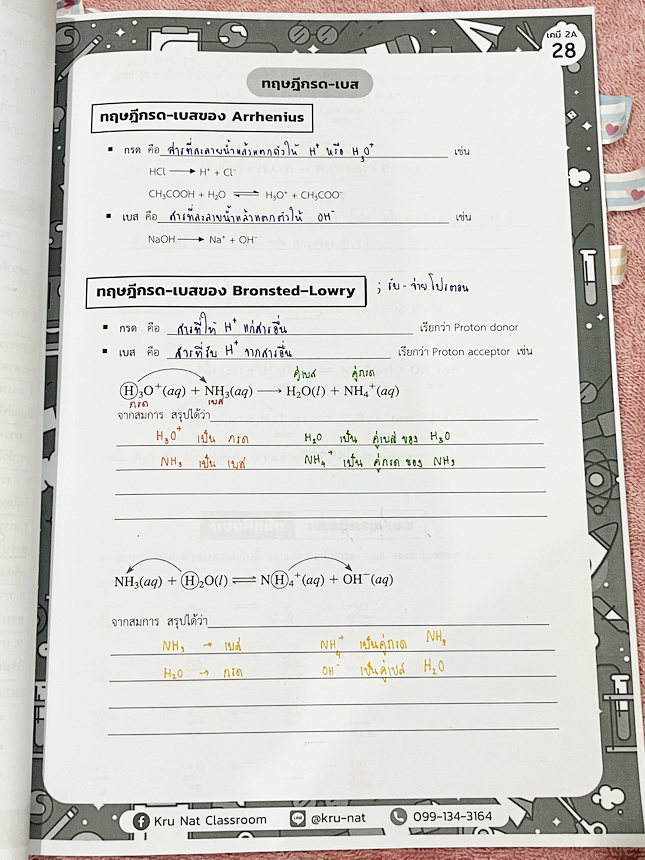 เคมี 2A
28
ทฤษฎีกรด-เบส
ทฤษฎีกรด-เบสของ Arrhenius
▪ กรด คือ สารที่ละลายน้ำแล้วแตกตัวให้ H⁺ หรือ H₃O⁺ เช่น
HCl ⟶ H⁺ + Cl⁻
CH₃COOH + H₂O ⇌ H₃O⁺ + CH₃COO⁻
▪ เบส คือ สารที่ละลายน้ำแล้วแตกตัวให้ OH⁻ เช่น
NaOH ⟶ Na⁺ + OH⁻
ทฤษฎีกรด-เบสของ Bronsted-Lowry ; รับ - จ่ายโปรตอน
▪ กรด คือ สารที่ให้ H⁺ แก่สารอื่น เรียกว่า Proton donor
▪ เบส คือ สารที่รับ H⁺ จากสารอื่น เรียกว่า Proton acceptor เช่น
คู่เบส คู่กรด
H₃O⁺(aq) + NH₃(aq) ⟶ H₂O(l) + NH₄⁺(aq)
กรด เบส
จากสมการ สรุปได้ว่า
H₃O⁺ เป็น กรด H₂O เป็น คู่เบส ของ H₃O
NH₃ เป็น เบส NH₄⁺ เป็น คู่กรด ของ NH₃
NH₃(aq) + H₂O(l) ⇌ NH₄⁺(aq) + OH⁻(aq)
จากสมการ สรุปได้ว่า
NH₃ → เบส NH₄⁺ เป็นคู่กรด NH₃
H₂O → กรด OH⁻ เป็นคู่เบส H₂O
Kru Nat Classroom @kru-nat 099-134-3164